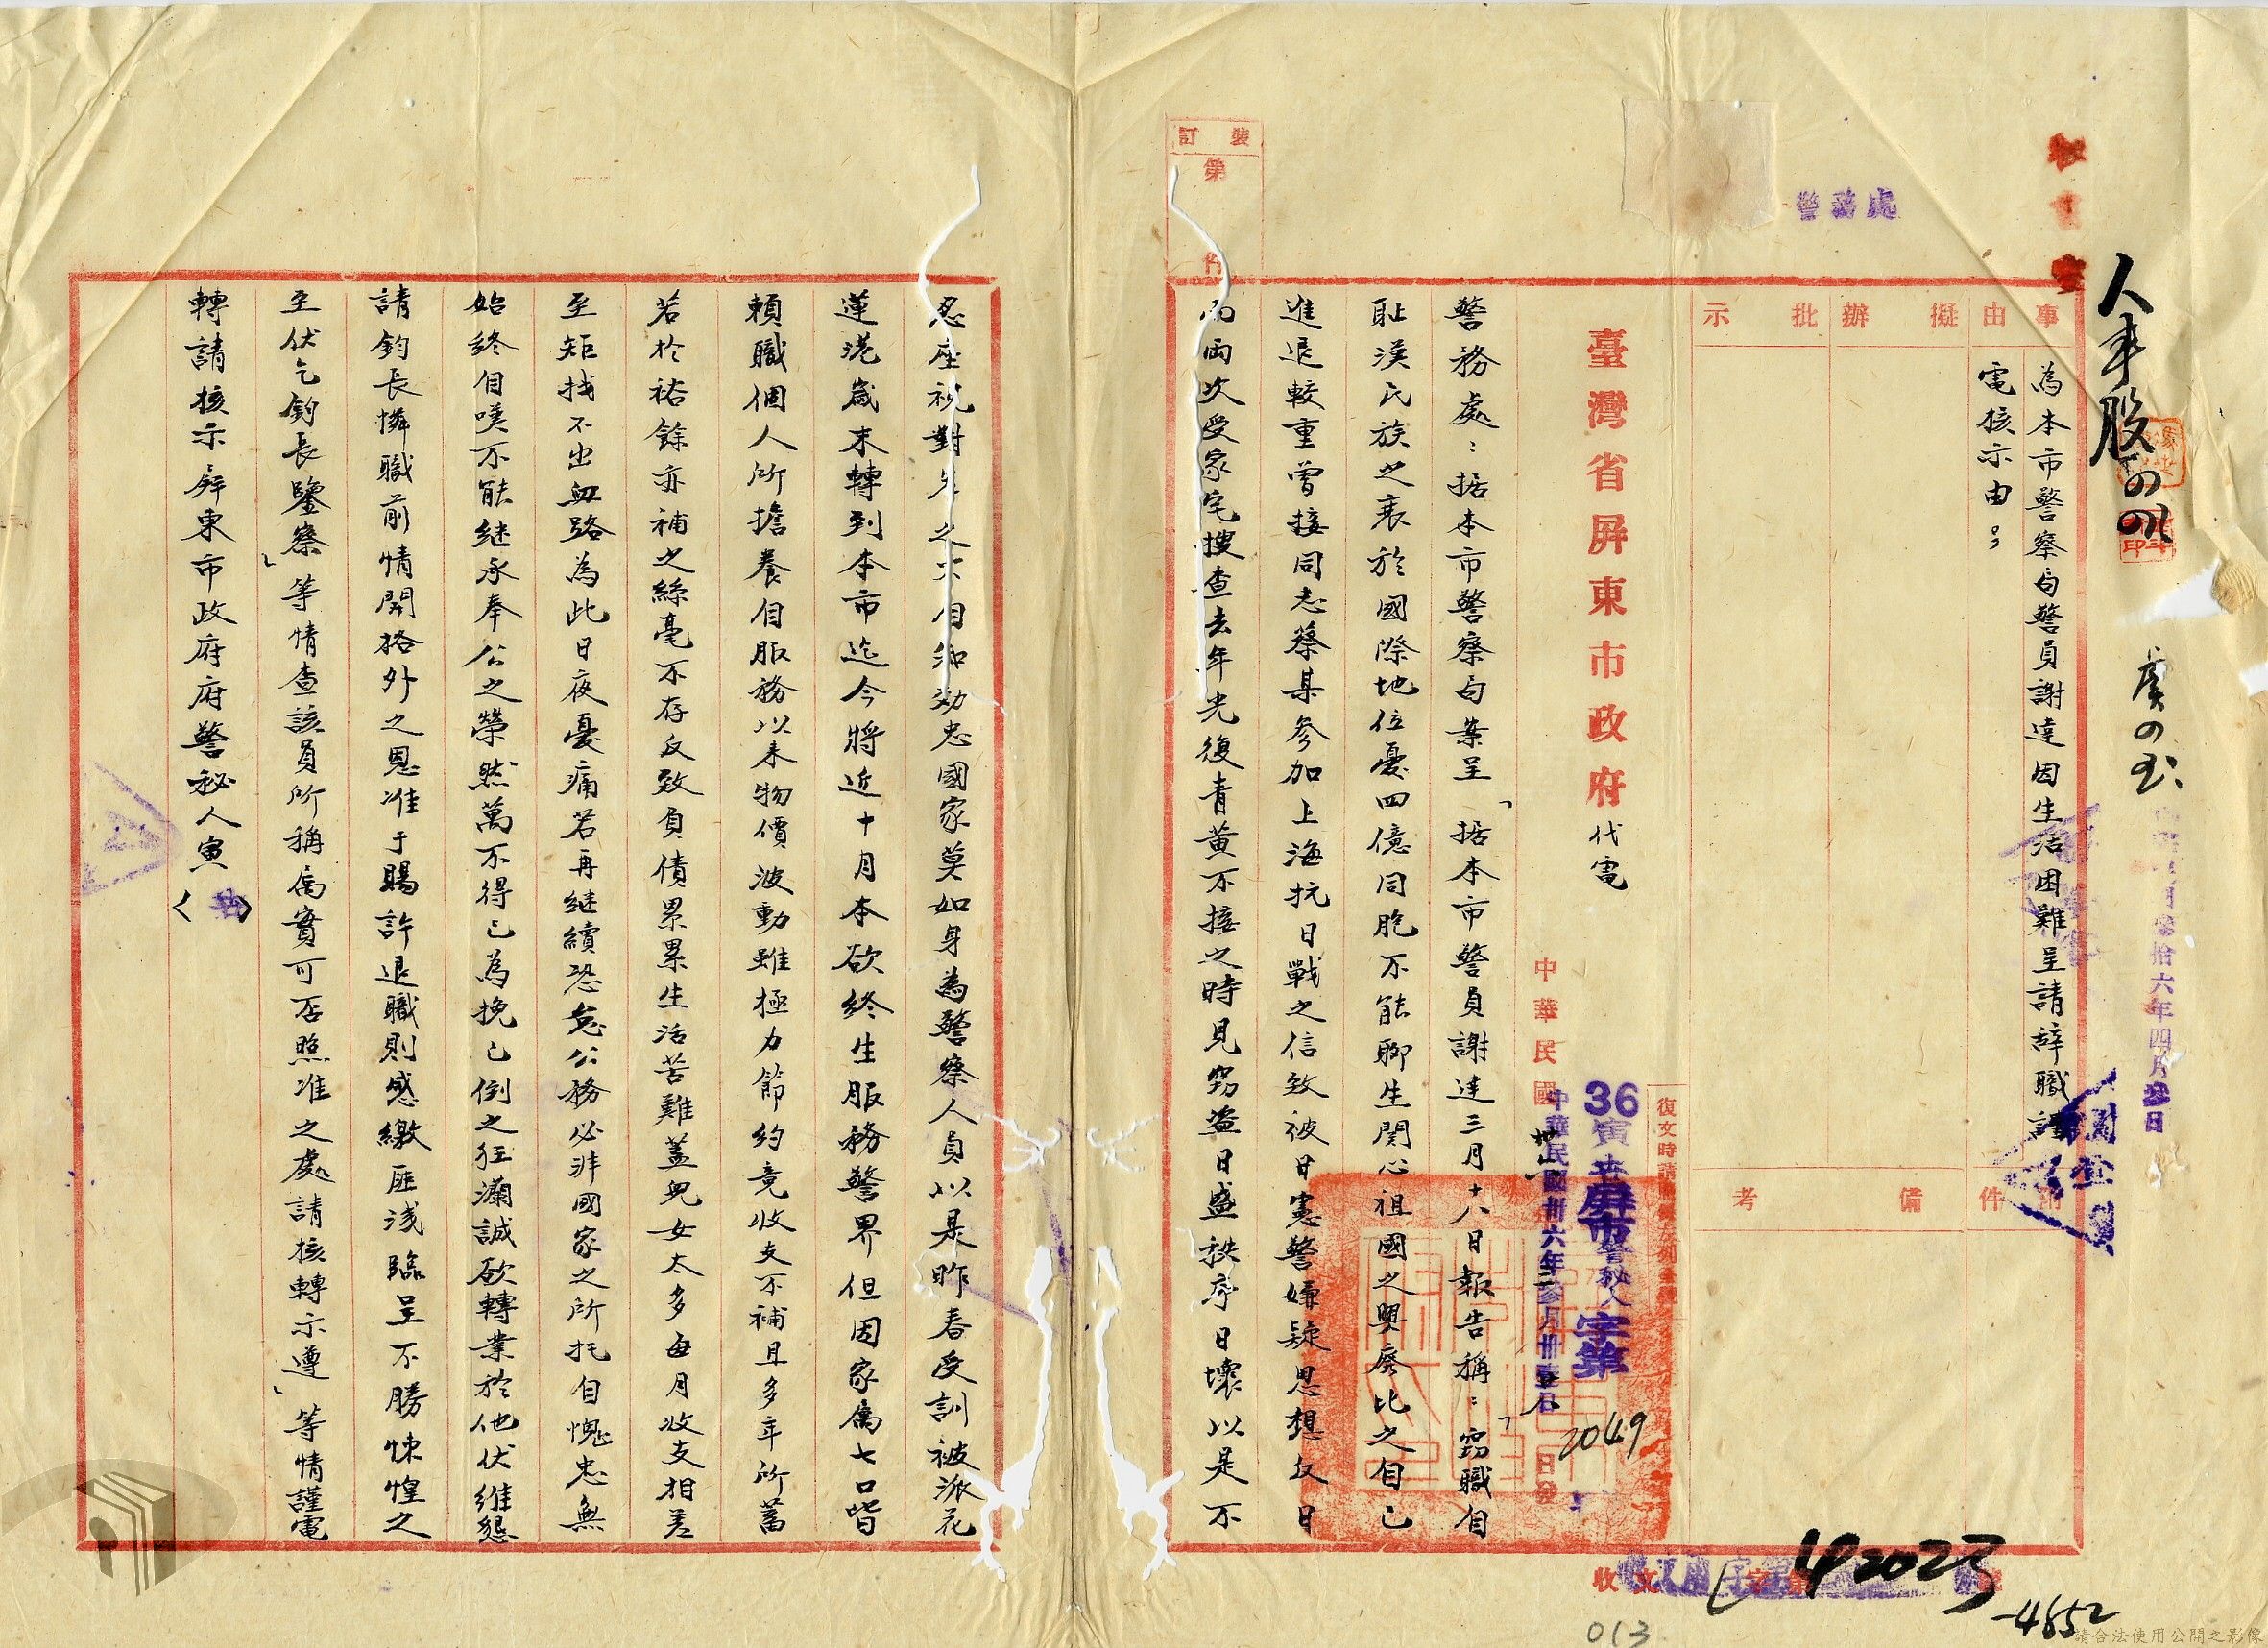 警務處
人事股
事由
為本市警察局警員謝達因生活困難呈請辞職謹
電核示由。
擬辦
批示
附件
備考
臺灣省屏東市政府代電
復文時請
36寅
屏市警秘人字第
2049
中華民國
中華民國卅六年參月卅壹日
日發
警務處：据本市警察局案呈「据本市警員謝達三月十八日報告稱：「窃職自
恥漢民族之衰於國際地位憂四億同胞不能聊生関心祖國之興廢比之自己
進退較重曾接同志蔡某參加上海抗日戰之信致被日憲警嫌疑思想反日
而両次受家宅搜查去年光復青黃不接之時見窃盗日盛秩序日壞以是不
忍座視對
自知効忠國家莫如身為警察人員以是昨春受訓被派花
蓮港歲末轉到本市迄今將近十月本欲終生服務警界但因家属七口皆
賴職個人所擔養自服務以来物價波動雖極力節約竟收支不補且多年所蓄
若於裕餘亦補之絲毫不存反致負債累累生活苦難蓋兒女太多每月收支相差
至矩找不出血路為此日夜憂痛若再継續恐怠公務必非國家之所托自愧忠無
始終自嘆不能継承奉公之榮然萬不得已為挽已倒之狂瀾誠欲轉業於他伏維懇
請鈞長憐職前情開格外之恩准于賜許退職則感繳匪浅臨呈不勝悚惶之
至伏乞鈞長鑒察」等情查該員所稱属實可否照准之處請核轉示遵」等情謹電
轉請核示屏東市政府府警秘人寅
裝訂第
件
收文
字第
42023
-4852
013
拾六年四月
日
請合法使用公開之影像